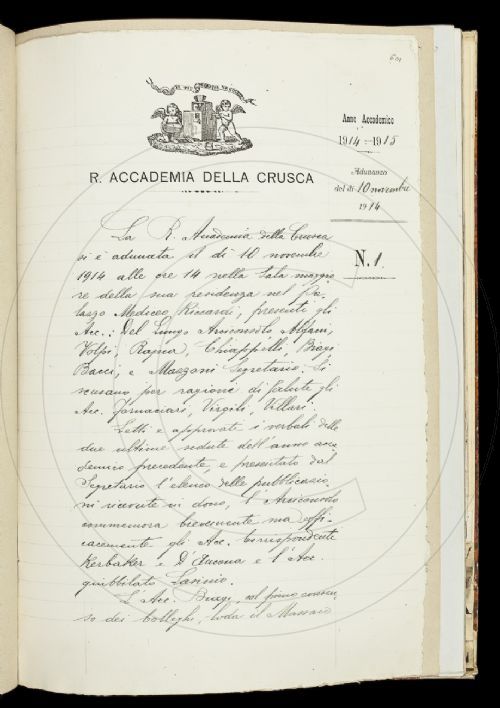 Anno Accademico
1914-1915
Adunanza
del dì 10 novembre
1914
N. 1
R. ACCADEMIA DELLA CRUSCA
La R. Accademia della Crusca
si è adunata il dì 10 novembre
1914 alle ore 14 nella sala maggio
re della sua residenza nel Pa-
lazzo Mediceo Riccardi, presenti gli
Acc.: Del Lungo Arciconsolo, Alfani,
Volpi, Rajna, Chiappelli,
Bacci, e Mazzoni Segretario. Si
scusano per ragione di salute gli
Acc. Fornaciari, Virgili, Villari.
Letti e approvati i verbali delle
due ultime sedute dell'anno acca
demico precedente, e presentato dal
Segretario l'elenco delle pubblicazio
ni ricevute in dono, l'Arciconsolo
commemora brevemente ma effi-
cacemente gli Acc. Corrispondente
Kerbaker e D'Ancona e l'Acc.
giubbilato Lasinio.
L'Acc. col primo consen
so dei Colleghi, loda il